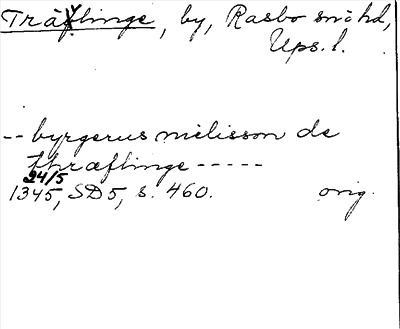 Träflinge, by, Rasbo snöhd,
Ups. l.
-- byrgerus nielisson de
thræflinge -----
24/5
1345, SD5, s. 460. orig.